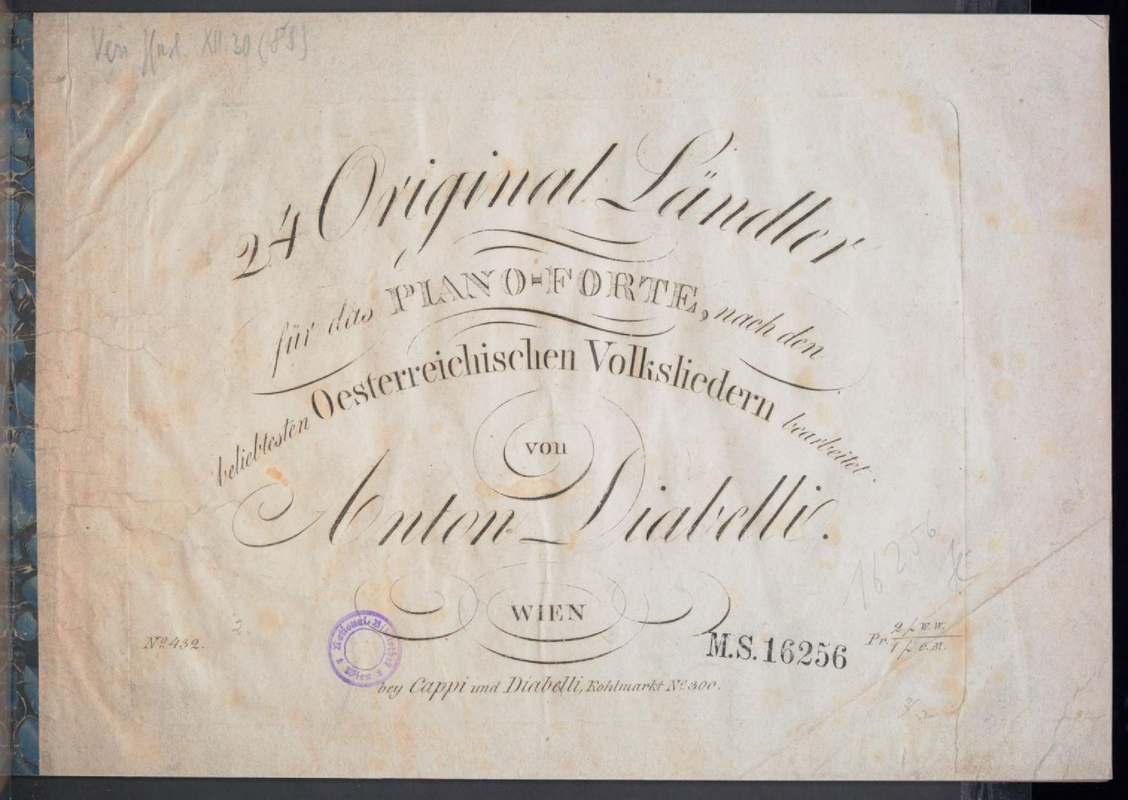 XII. 30 (89)
24 Original Ländler
für das PIANO-FORTE, nach den
beliebtesten Oesterreichischen Volksliedern bearbeitet.
von
Anton Diabelli.
WIEN
16256
National-Bibliothek Wien
Nº 432.
2.
M.S.16256
Pr. 2 f. w.w.
1 f. C.M.
bey Cappi und Diabelli, Kohlmarkt Nº 300.